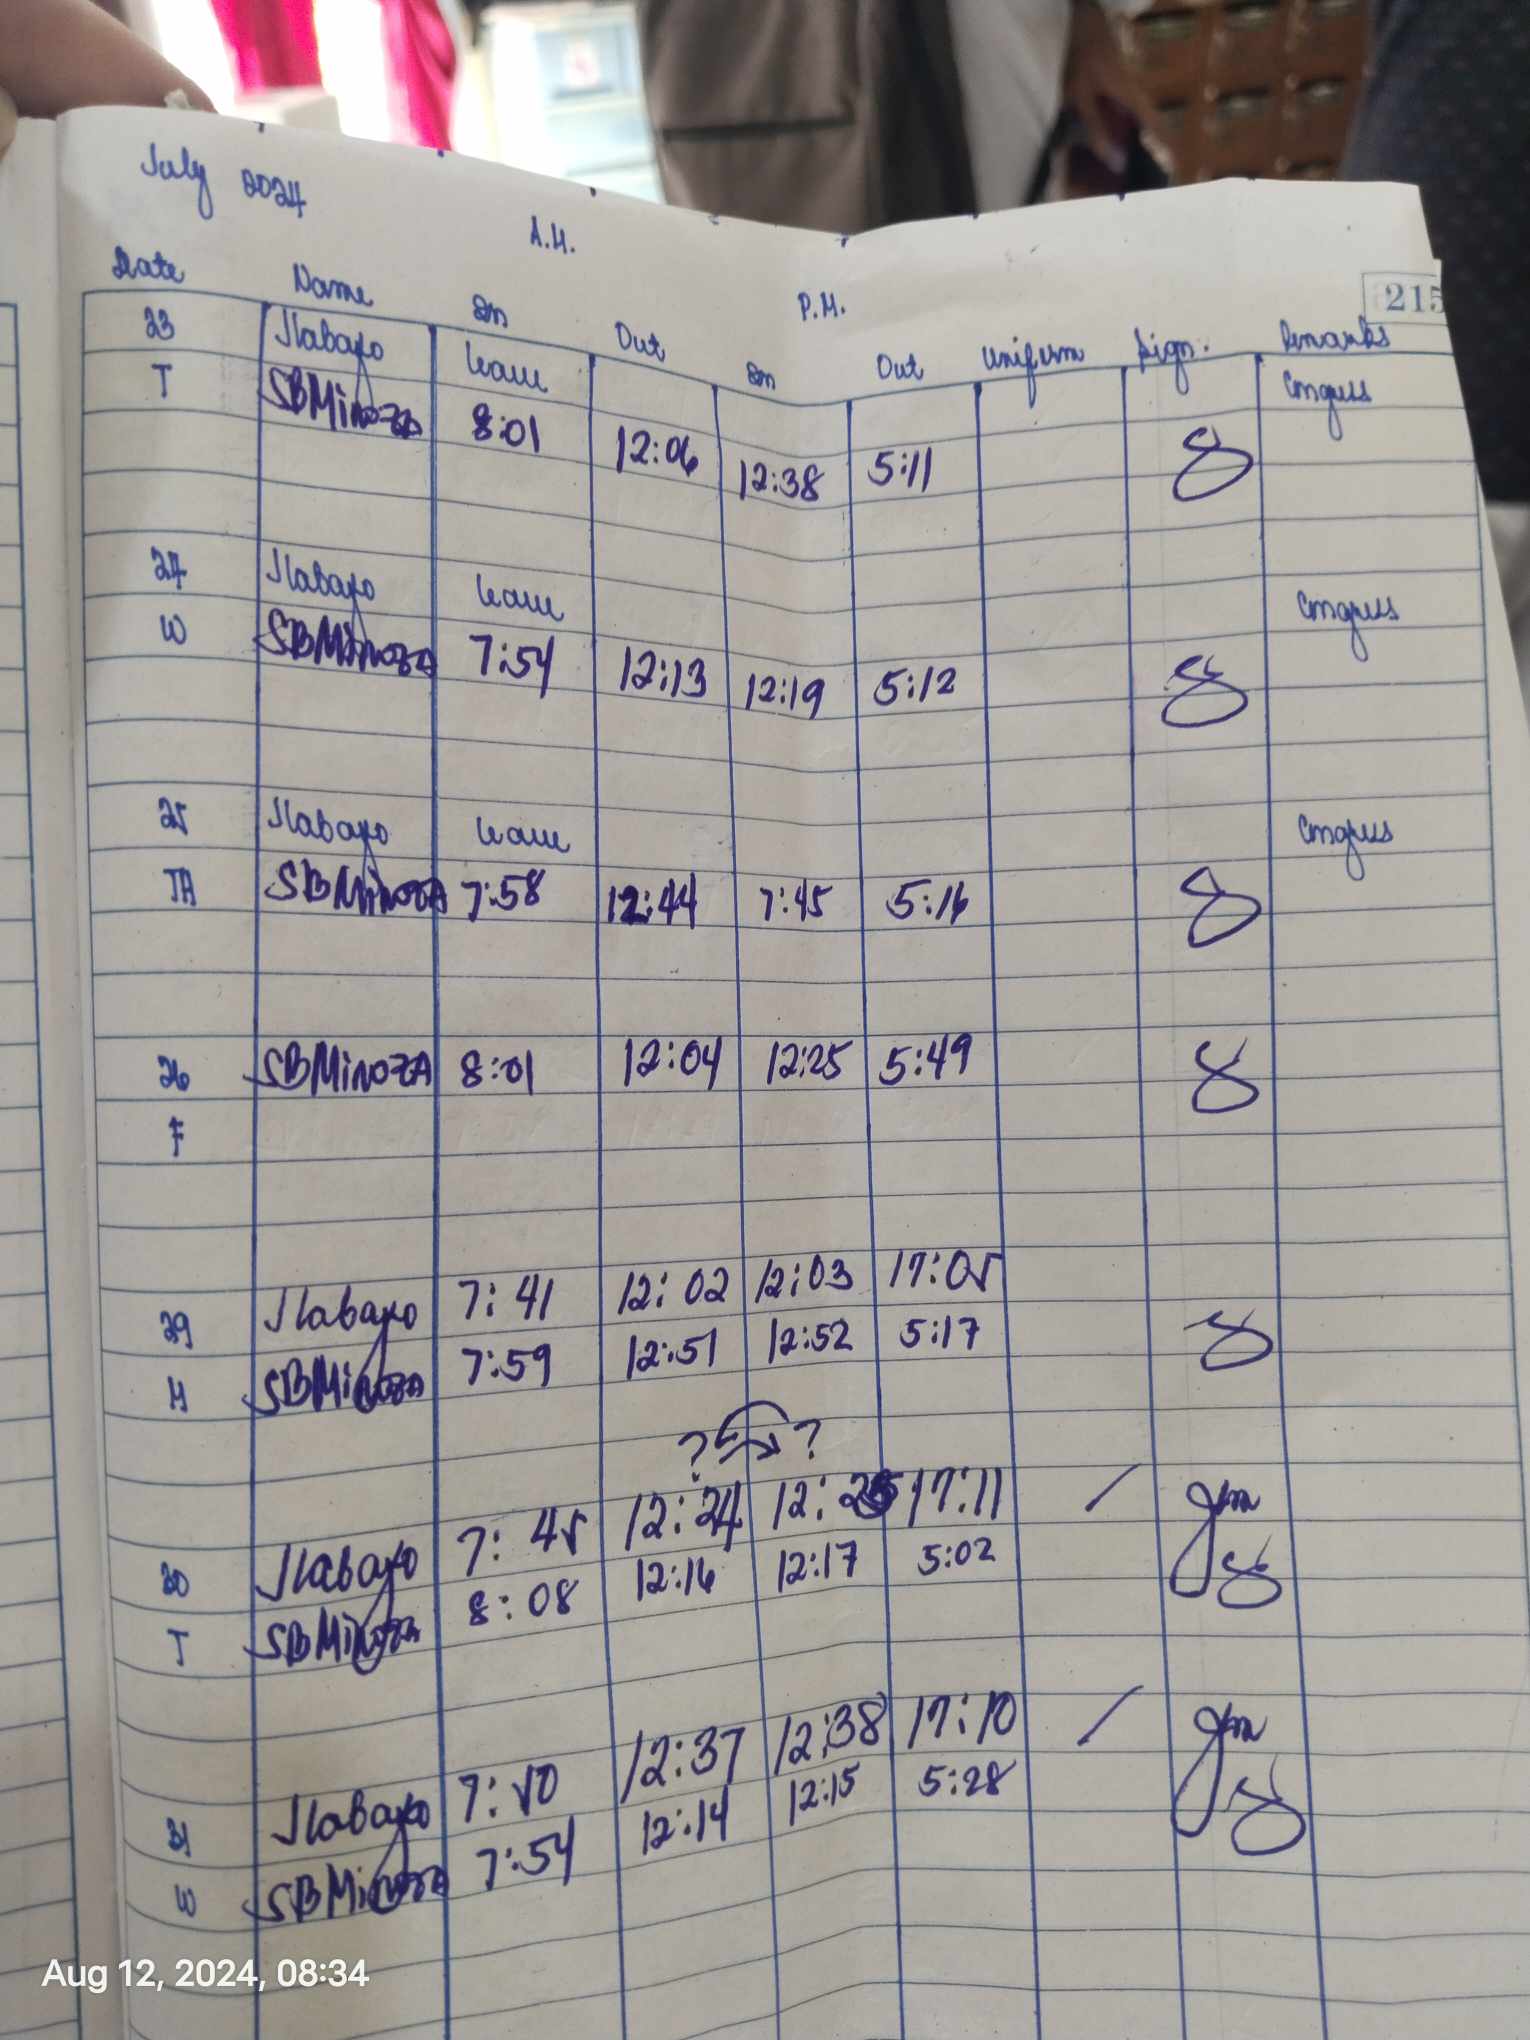 July 2024
A.M. P.M.
215
Date Name In Out In Out Uniform Sign. Remarks
23 Jlabayo leave Congress
T SBMiNOZA 8:01 12:06 12:38 5:11
24 Jlabayo leave Congress
W SBMiNOZA 7:54 12:13 12:19 5:12
25 Jlabayo leave Congress
TH SBMiNOZA 7:58 12:44 7:45 5:16
26 SBMiNOZA 8:01 12:04 12:25 5:49
F
29 Jlabayo 7:41 12:02 12:03 17:05
M SBMiNOZA 7:59 12:51 12:52 5:17
? ?
30 Jlabayo 7:45 12:24 12:25 17:11 /
T SBMiNOZA 8:08 12:16 12:17 5:02
31 Jlabayo 7:50 12:37 12:38 17:10 /
W SBMiNOZA 7:54 12:14 12:15 5:28
Aug 12, 2024, 08:34